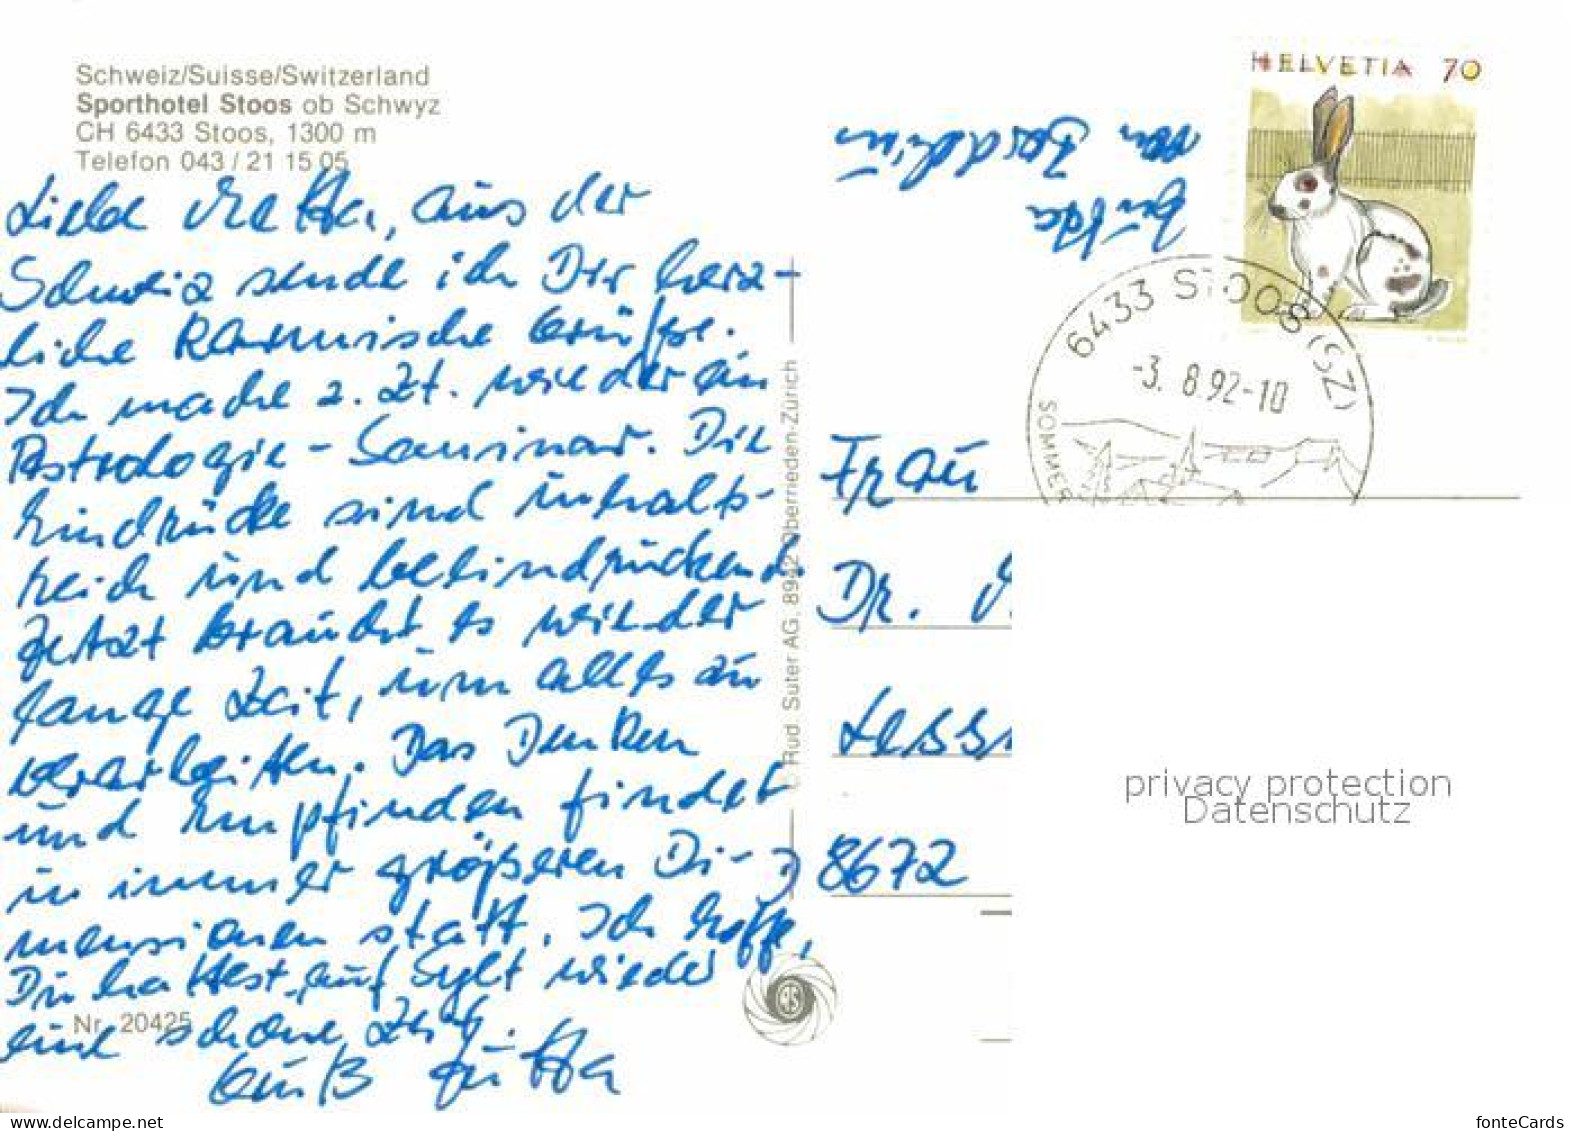 Schweiz/Suisse/Switzerland
Sporthotel Stoos ob Schwyz
CH 6433 Stoos, 1300 m
Telefon 043 / 21 15 05
Liebe Metta, aus der
Schweiz sende ich Dir herz-
liche Karmische Grüße.
Ich mache z. Zt. wieder ein
Astrologie-Seminar. Die
Eindrücke sind inhalts-
reich und beeindruckend.
Jetzt braucht es wieder
lange Zeit, um alles zu
verarbeiten. Das Denken
und Empfinden findet
in immer größeren Di-
mensionen statt. Ich hoffe,
Du hattest auf Sylt wieder
eine schöne Zeit.
Gruß Jutta
Nr. 20425
© Rud. Suter AG, 8942 Oberrieden-Zürich
HELVETIA 70
6433 STOOS (SZ)
-3. 8.92-10
SOMMER
Jutta
von
Frau
Dr.
8672
privacy protection
Datenschutz
www.delcampe.net
fonteCards